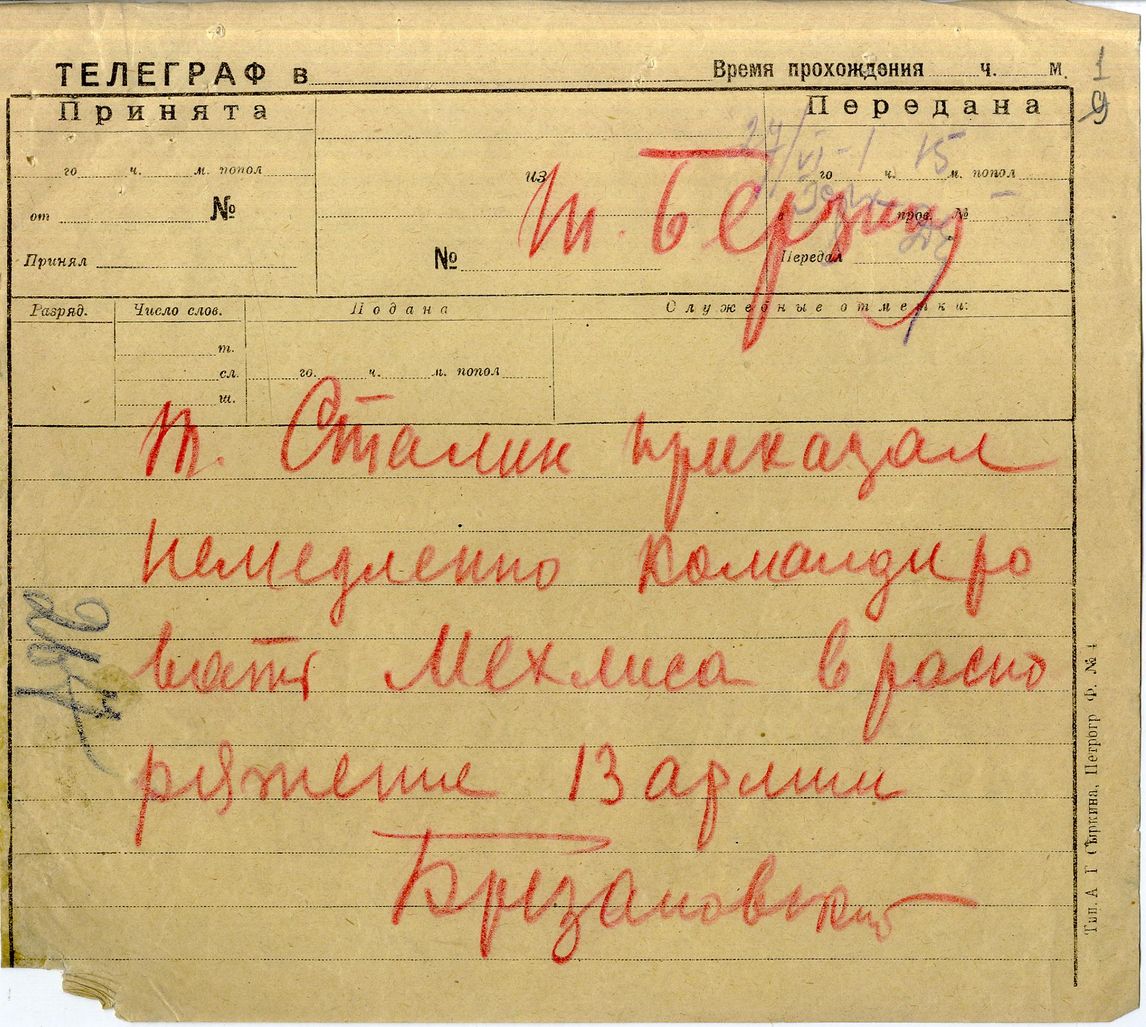 ТЕЛЕГРАФ в Время прохождения ч. м. 1
Принята Передана 9
27/VI-1 15
го ч. м. попол из го ч. м. попол
т. Берзину
от № в пров. №
Принял № Передал
Разряд. Число слов. Подана Служебные отметки:
т.
сл. го. ч. м. попол
ш.
т. Сталин приказал
немедленно командиро
вать Мехлиса в распо
ряжение 13 армии
Брезановский
Тип. А Г Сыркина, Петрогр Ф. № 4